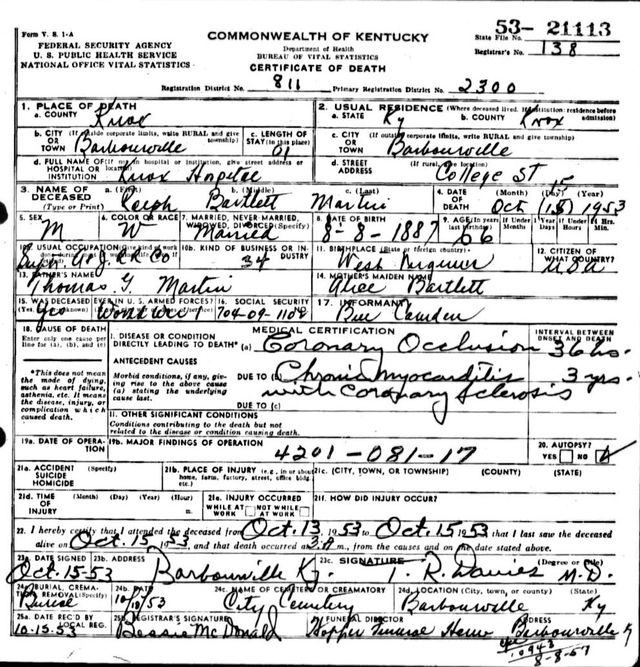 Form V. S. 1-A
COMMONWEALTH OF KENTUCKY
53- 21113
FEDERAL SECURITY AGENCY
Department of Health
State File No.
U. S. PUBLIC HEALTH SERVICE
BUREAU OF VITAL STATISTICS
Registrar's No. 138
NATIONAL OFFICE VITAL STATISTICS
CERTIFICATE OF DEATH
Registration District No. 811 Primary Registration District No. 2300
1. PLACE OF DEATH
a. COUNTY Knox
2. USUAL RESIDENCE (Where deceased lived. If institution: residence before admission)
a. STATE Ky b. COUNTY Knox
b. CITY (If outside corporate limits, write RURAL and give township) OR TOWN Barbourville
c. LENGTH OF STAY (in this place) 01
c. CITY (If outside corporate limits, write RURAL and give township) OR TOWN Barbourville
d. FULL NAME OF (If not in hospital or institution, give street address or location) HOSPITAL OR INSTITUTION Knox Hospital
d. STREET ADDRESS (If rural, give location) College St
3. NAME OF DECEASED (Type or Print) a. (First) Ralph b. (Middle) Bartlett c. (Last) Martin
4. DATE OF DEATH (Month) (Day) (Year) Oct (15) 1953
15
5. SEX M
6. COLOR OR RACE W
7. MARRIED, NEVER MARRIED, WIDOWED, DIVORCED (Specify) Married
8. DATE OF BIRTH 8-8-1887
9. AGE (In years last birthday) 66
If Under 1 Year Months Days
If Under 24 Hrs. Hours Min.
10a. USUAL OCCUPATION (Give kind of work done during most of working life)
10b. KIND OF BUSINESS OR INDUSTRY 34
11. BIRTHPLACE (State or foreign country) West Virginia
12. CITIZEN OF WHAT COUNTRY? USA
13. FATHER'S NAME Thomas G. Martin
14. MOTHER'S MAIDEN NAME Alice Bartlett
15. WAS DECEASED EVER IN U. S. ARMED FORCES? Yes World War I
16. SOCIAL SECURITY 704-09-1109
17. INFORMANT
18. CAUSE OF DEATH
Enter only one cause per line for (a), (b), and (c)
MEDICAL CERTIFICATION
INTERVAL BETWEEN ONSET AND DEATH
I. DISEASE OR CONDITION DIRECTLY LEADING TO DEATH* (a) Coronary Occlusion 36 hs.
*This does not mean the mode of dying, such as heart failure, asthenia, etc. It means the disease, injury, or complication which caused death.
ANTECEDENT CAUSES
Morbid conditions, if any, giving rise to the above cause (a) stating the underlying cause last.
DUE TO (b) Chronic myocarditis 3 yrs.
with Coronary Sclerosis
DUE TO (c)
II. OTHER SIGNIFICANT CONDITIONS
Conditions contributing to the death but not related to the disease or condition causing death.
19a. DATE OF OPERATION
19b. MAJOR FINDINGS OF OPERATION
4201-081-17
20. AUTOPSY?
YES NO
21a. ACCIDENT SUICIDE HOMICIDE (Specify)
21b. PLACE OF INJURY (e.g., in or about home, farm, factory, street, office bldg., etc.)
21c. (CITY, TOWN, OR TOWNSHIP) (COUNTY) (STATE)
21d. TIME OF INJURY (Month) (Day) (Year) (Hour)
21e. INJURY OCCURRED WHILE AT WORK NOT WHILE AT WORK
21f. HOW DID INJURY OCCUR?
22. I hereby certify that I attended the deceased from Oct. 13, 1953 to Oct. 15 1953 that I last saw the deceased
alive on Oct. 15 1953, and that death occurred at 3:A m., from the causes and on the date stated above.
23a. DATE SIGNED Oct. 15-53
23b. ADDRESS Barbourville Ky.
23c. SIGNATURE (Degree or title) T. R. Davies M.D.
24a. BURIAL, CREMATION, REMOVAL (Specify) Burial
24b. DATE
24c. NAME OF CEMETERY OR CREMATORY City Cemetery
24d. LOCATION (City, town, or county) (State) Barbourville Ky
25a. DATE REC'D BY LOCAL REG. 10-15.53
25b. REGISTRAR'S SIGNATURE Bessie McDonald
FUNERAL DIRECTOR Hopper Funeral Home
ADDRESS Barbourville K
10943